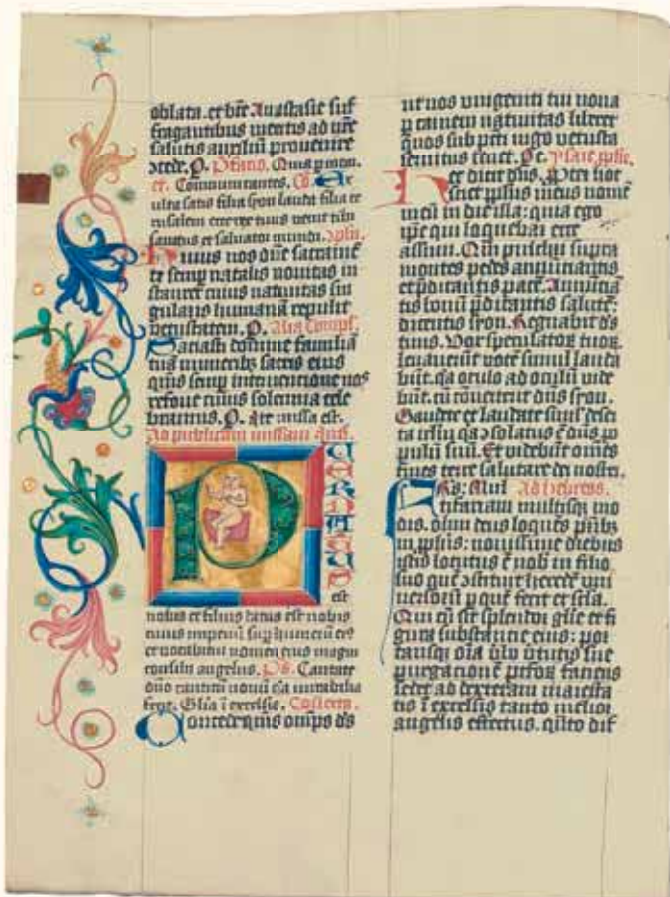 oblata. et bte Anastasie suf
fragantibus meritis ad nre
salutis auxiliu provenire
ɔcede. P. Pfatio. Quia p incar.
et. Communicantes. Co. Ex
ulta satis filia syon lauda filia ie
rusalem ecce rex tuus venit tibi
sanctus et salvator mundi.
Huius nos dne sacrame
ti semp natalis novitas in
stauret cuius nativitas sin
gularis humanā repulit
vetustatem. P. Alia Compl.
Saciasti domine familiā
tuā muneribꝫ sacris eius
qus semp interventione nos
refove cuius solemnia cele
bramus. P. Ite missa est.
Ad publicam missam
P
UER NATUS
est
nobis et filius datus est nobis
cuius imperiū sup humerū eiꝰ
et vocabitur nomen eius magni
consilii angelus. Ps. Cantate
dno canticū novū qa mirabilia
fecit. Glia i excelsis. Collecta.
Concede qus omps ds
ut nos unigeniti tui nova
p carnem nativitas liberet
quos sub pcti iugo vetusta
servitus tenet. Pe. Ysaie pphe.
Hec dicit dns. Propter hoc
sciet pplus meus nomē
meū in die illa: quia ego
ipe qui loquebar ecce
assum. Qm pulchri supra
montes pedes annuciantis
et pdicantis pacē. Annūciā
tis bonū pdicantis salutē:
dicentis syon. Regnabit ds
tuus. Vox speculatoꝝ tuoꝝ.
levaverūt vocē simul lauda
būt. qa oculo ad oculū vide
būt. cū cōverterit dns syon.
Gaudete et laudate simul deser
ta irlm qa ɔsolatus ē dns po
pulū suū. Et videbūt omēs
fines terre salutare dei nostri.
Ad hebreos.
Multifariam multisqꝫ mo
dis. olim deus loquēs pribꝫ
in pphis: novissime diebus
istis locutus ē nob in filio
suo quē ɔstituit heredē uni
versoꝝ p quē fecit et scla.
Qui cū sit splendor glie et fi
gura substantie eius: por
tansqꝫ oīa vbo vtutis sue
purgationē pctoꝝ faciens
sedet ad dexteram maiesta
tis ī excelsis tanto melior
angelis effectus. quāto dif